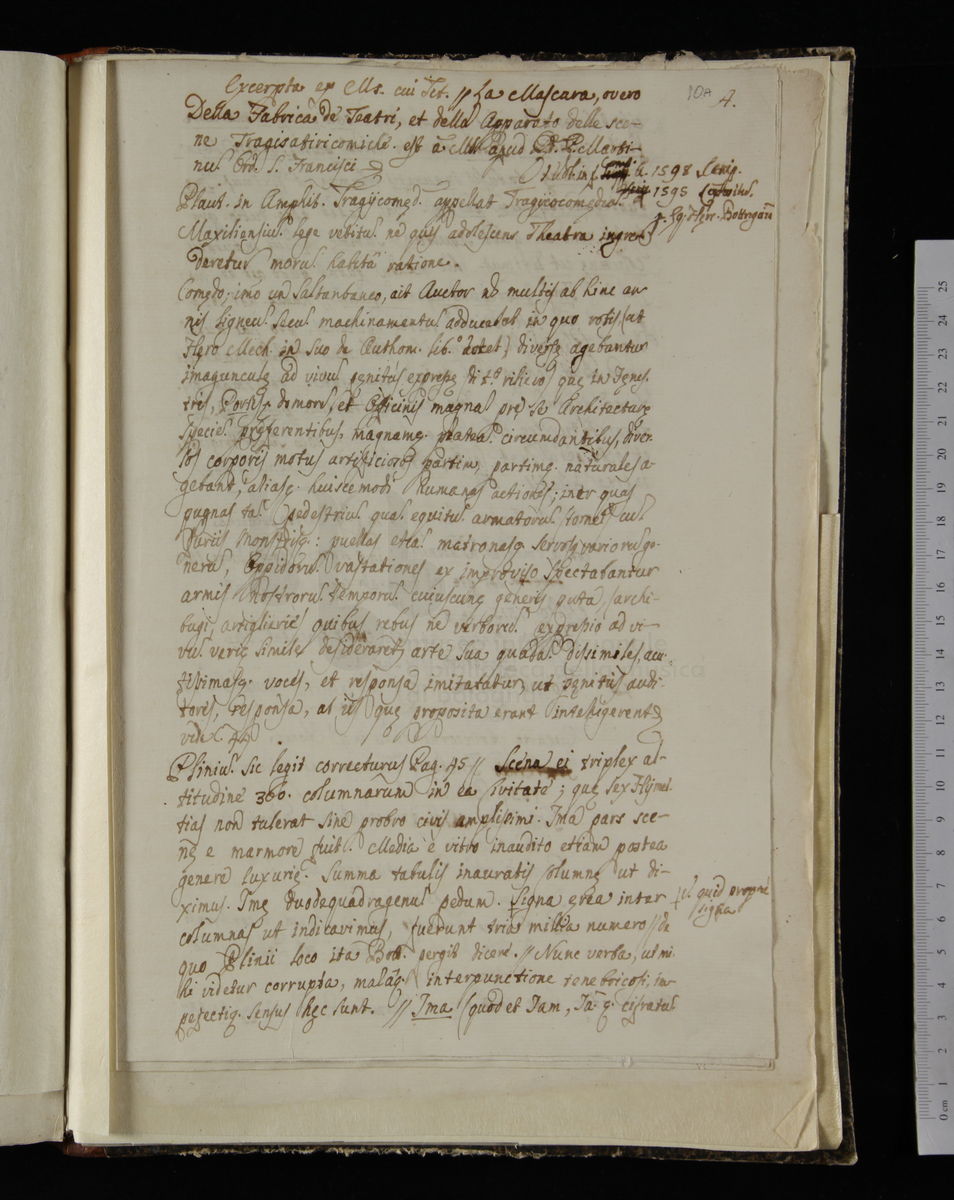 10A 4.
Excerpta ex Ms. cui Tit. // La Mascara, overo
Della Fabrica de Teatri, et dello Apparato delle sce-
ne Tragisatiricomiche. est apud P. Marti-
nus Ord. S. Francisci
1598
1595
Plaut. in Amphit. Tragicomed. appellat
Massiliensius lege vetitus ne quis adolescens Theatra ingre-
deretur morus habita ratione.
Comedo, imo un Saltanbanco, ait Auctor no multis ab hinc an
nis ligneus secus machinamentus adducebat in quo rotis (ut
Hero Mech. in suo de Authom. lib.° docet) diverse agebantur
imaguncule ad vivus penitus expresse di t.° rilievo que in Fenes
tris, domorus, et Officinis magnas pre se Architecture
species preferentibus, magnamq. plateas circumdantibus, diver
sos corporis motus artificiosos partim, partimq. naturales a-
gebant, aliasq. huiscemodi humanas actiones; inter quas
pugnas tas pedestrius quas equitus armatorus
puellas etias matronasq. servosq. variorus ge-
nerus, Oppidorus vastationes ex improviso spectabantur
armis Nostrorus Temporus cuiuscunq. generis puta, (archi-
bugi, artiglierie) quibus rebus ne verborus expressio ad vi-
vus veris similes desideraretur arte sua quadas dissimiles, acu-
tissimasq. voces, et responsa imitatatur, ut penitus audi-
tores, responsa, ac iis que proposita erant intelligerent
vide C. 44
Plinius sic legit correcturus Pag. 45 // Scena ei triplex al-
titudine 360. columnarum in ea Civitate; que sex Hymet
tias non tulerat sine probro civis amplissimi. Ima pars sce-
ne e marmore fuit. Media e vitro inaudito etiam postea
genere luxurie. Summa tabulis inauratis columne ut di-
ximus. Ime duodequadragenus pedum. Signa erea inter
columnas ut indicavimus, fuerunt tria millia numero // de
quid proprie
signa
quo Plinii loco ita Bott. pergit dicere. // Nunc verba, ut mi
hi videtur corrupta, malaq. interpunctione tenebricosi, im-
pefectiq. sensus hec sunt. // Ima (quod et Jam, Ja. q. cifratus